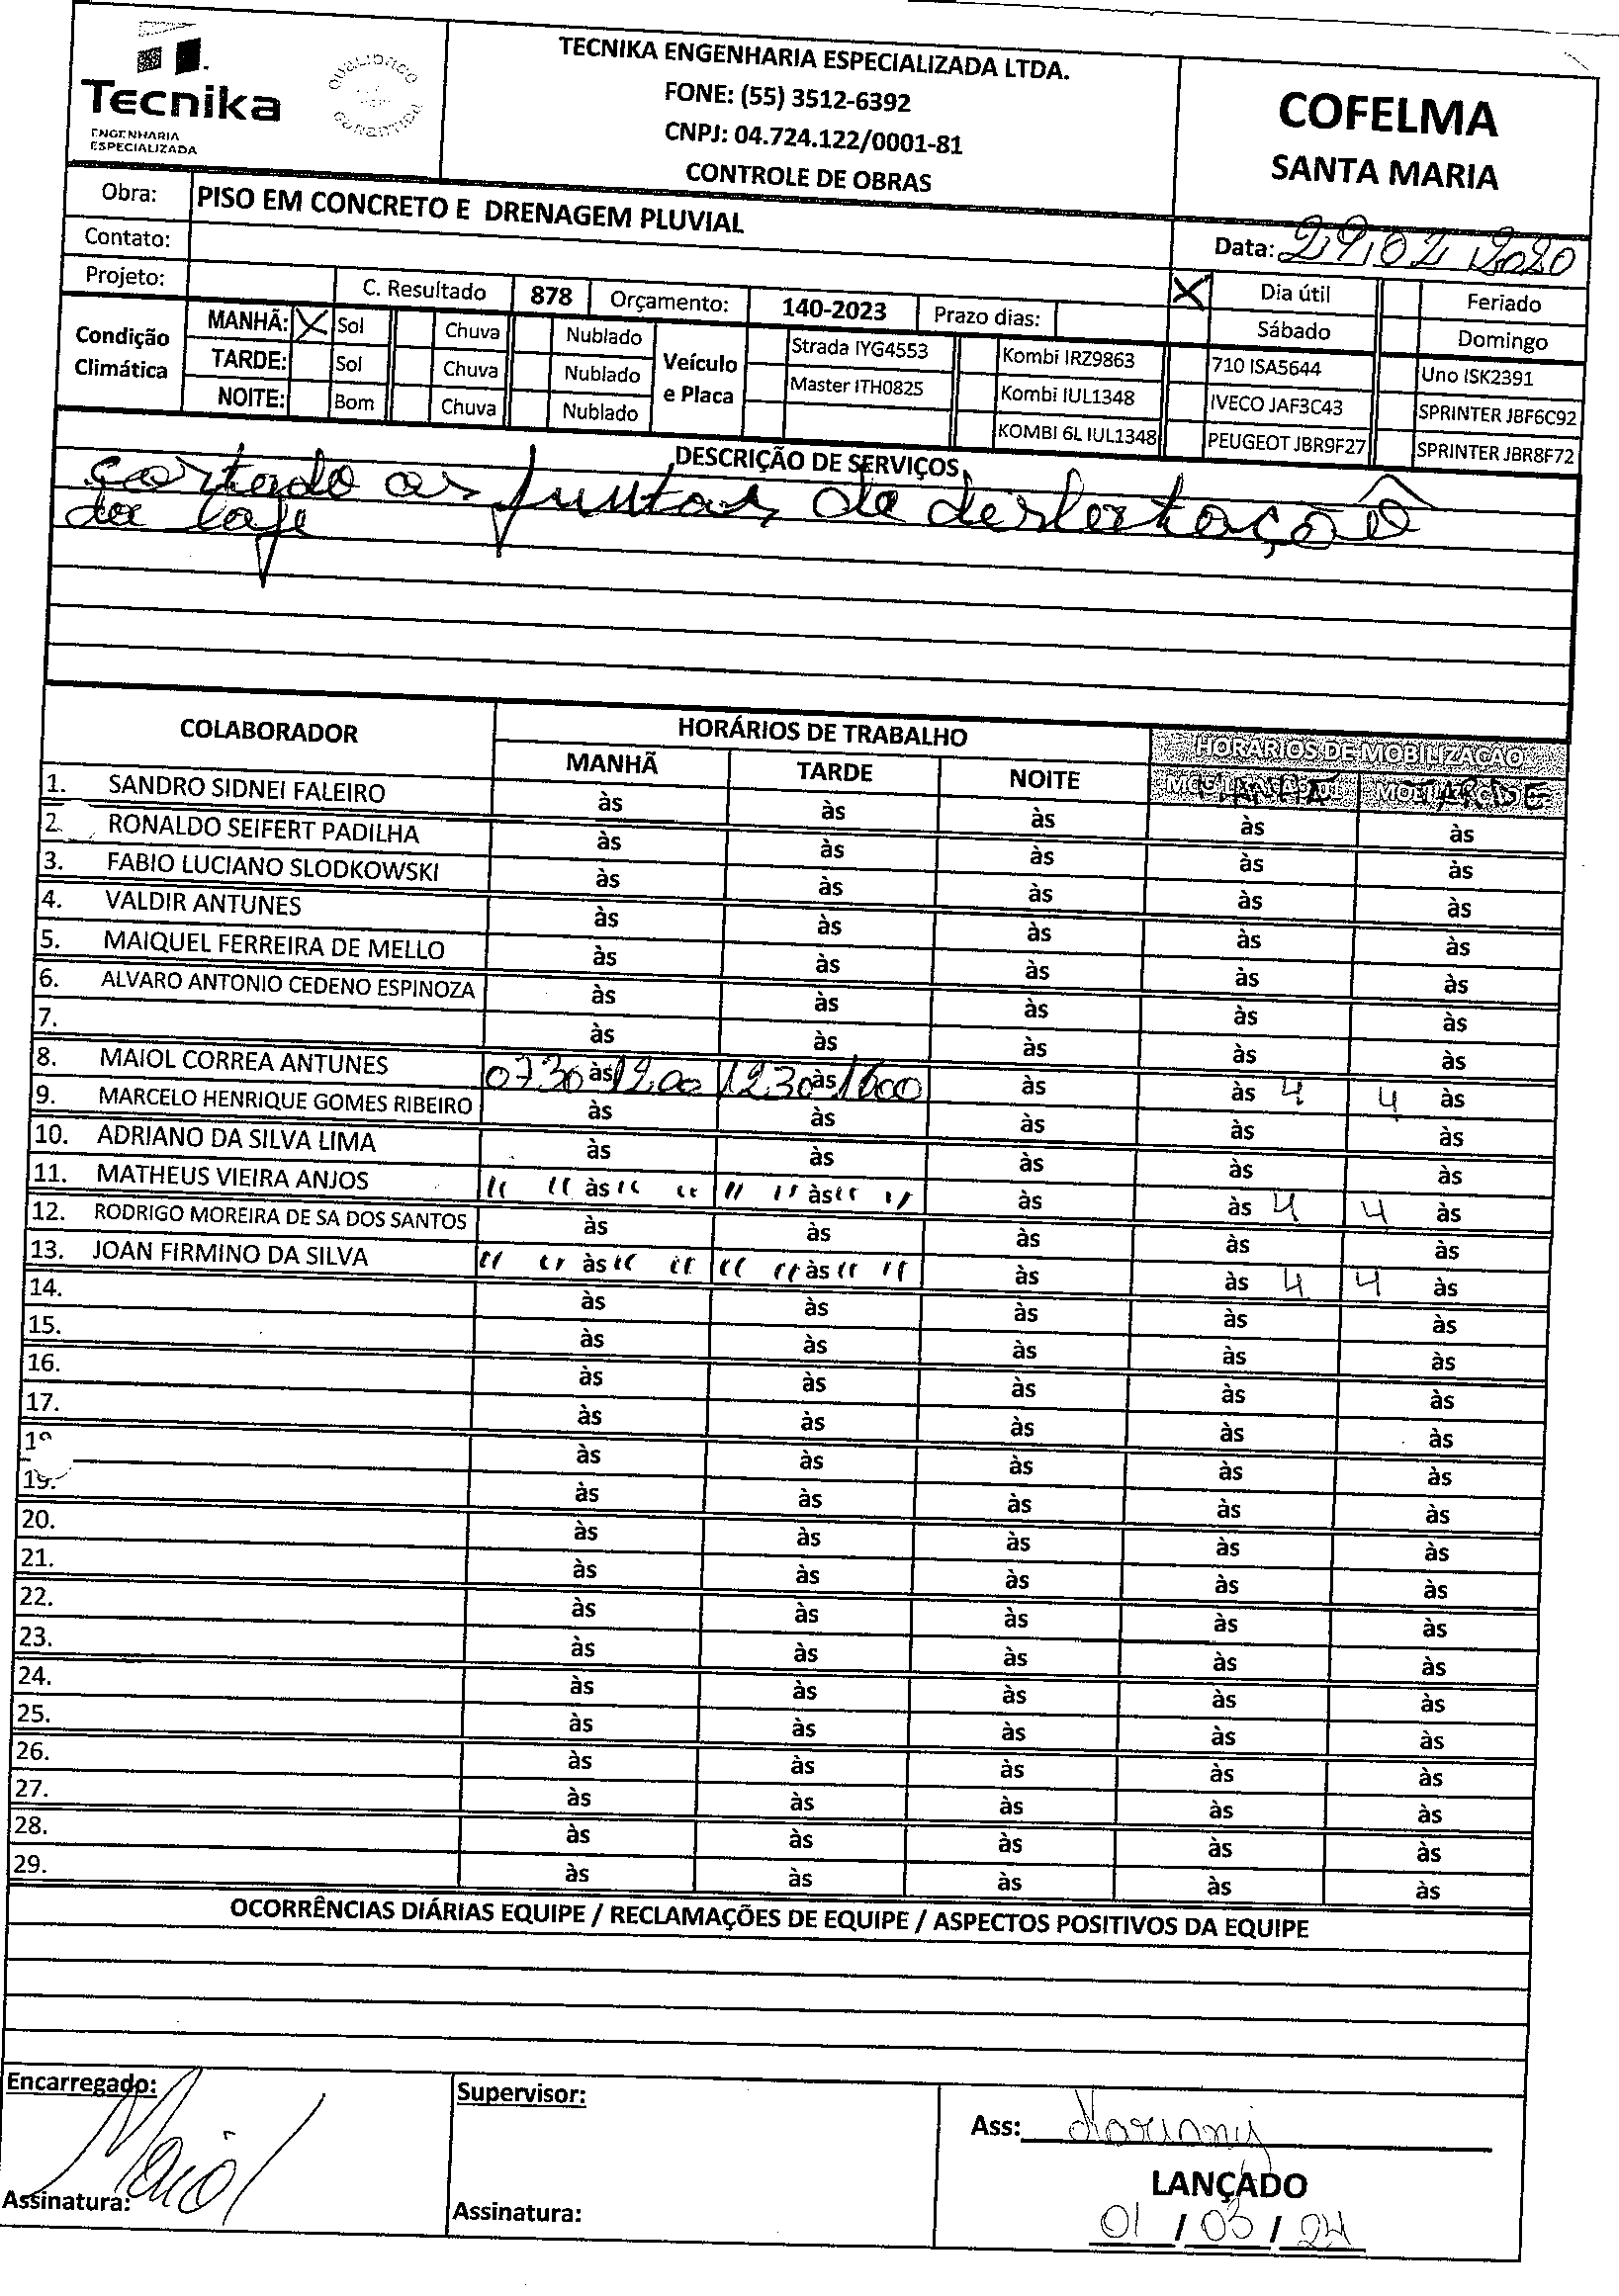 Tecnika
ENGENHARIA
ESPECIALIZADA
TECNIKA ENGENHARIA ESPECIALIZADA LTDA.
FONE: (55) 3512-6392
CNPJ: 04.724.122/0001-81
CONTROLE DE OBRAS
COFELMA
SANTA MARIA
Obra: PISO EM CONCRETO E DRENAGEM PLUVIAL
Contato:
Data: 29.02.2020
Projeto: C. Resultado 878 Orçamento: 140-2023 Prazo dias: X Dia útil Feriado
Sábado Domingo
Condição Climática
MANHÃ: X Sol Chuva Nublado
TARDE: Sol Chuva Nublado
NOITE: Bom Chuva Nublado
Veículo e Placa
Strada IYG4553 Kombi IRZ9863 710 ISA5644 Uno ISK2391
Master ITH0825 Kombi IUL1348 IVECO JAF3C43 SPRINTER JBF6C92
KOMBI 6L IUL1348 PEUGEOT JBR9F27 SPRINTER JBR8F72
DESCRIÇÃO DE SERVIÇOS
cortado as juntas de
da laje
COLABORADOR HORÁRIOS DE TRABALHO HORÁRIOS DE MOBILIZAÇÃO
MANHÃ TARDE NOITE MANHÃ TARDE
1. SANDRO SIDNEI FALEIRO às às às às às
2. RONALDO SEIFERT PADILHA às às às às às
3. FABIO LUCIANO SLODKOWSKI às às às às às
4. VALDIR ANTUNES às às às às às
5. MAIQUEL FERREIRA DE MELLO às às às às às
6. ALVARO ANTONIO CEDENO ESPINOZA às às às às às
7. às às às às às
8. MAIOL CORREA ANTUNES 0730 às 1200 1230 às 1600 às às 4 4 às
9. MARCELO HENRIQUE GOMES RIBEIRO às às às às às
10. ADRIANO DA SILVA LIMA às às às às às
11. MATHEUS VIEIRA ANJOS " " às " " " " às " " às às 4 4 às
12. RODRIGO MOREIRA DE SA DOS SANTOS às às às às às
13. JOAN FIRMINO DA SILVA " " às " " " " às " " às às 4 4 às
14. às às às às às
15. às às às às às
16. às às às às às
17. às às às às às
às às às às às
19. às às às às às
20. às às às às às
21. às às às às às
22. às às às às às
23. às às às às às
24. às às às às às
25. às às às às às
26. às às às às às
27. às às às às às
28. às às às às às
29. às às às às às
OCORRÊNCIAS DIÁRIAS EQUIPE / RECLAMAÇÕES DE EQUIPE / ASPECTOS POSITIVOS DA EQUIPE
Encarregado: Supervisor:
Maiol
Ass:
Assinatura: Assinatura:
LANÇADO
01 / 03 / 24